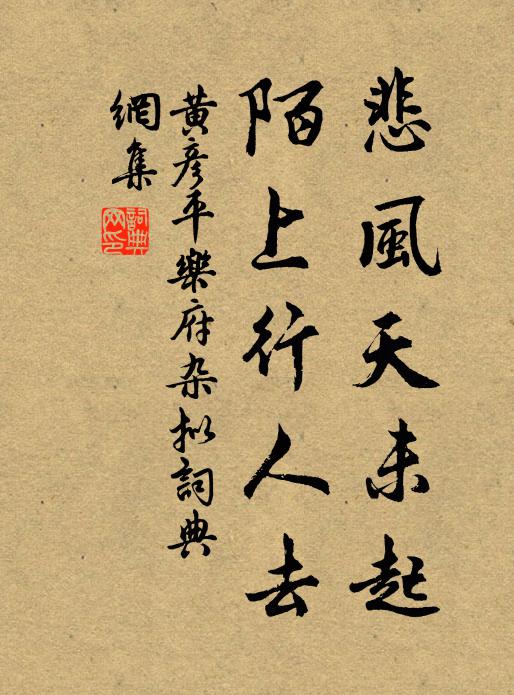 悲風天末起
陌上行人去
黃彥平樂府杂拟詞典
網集
詞典
网印